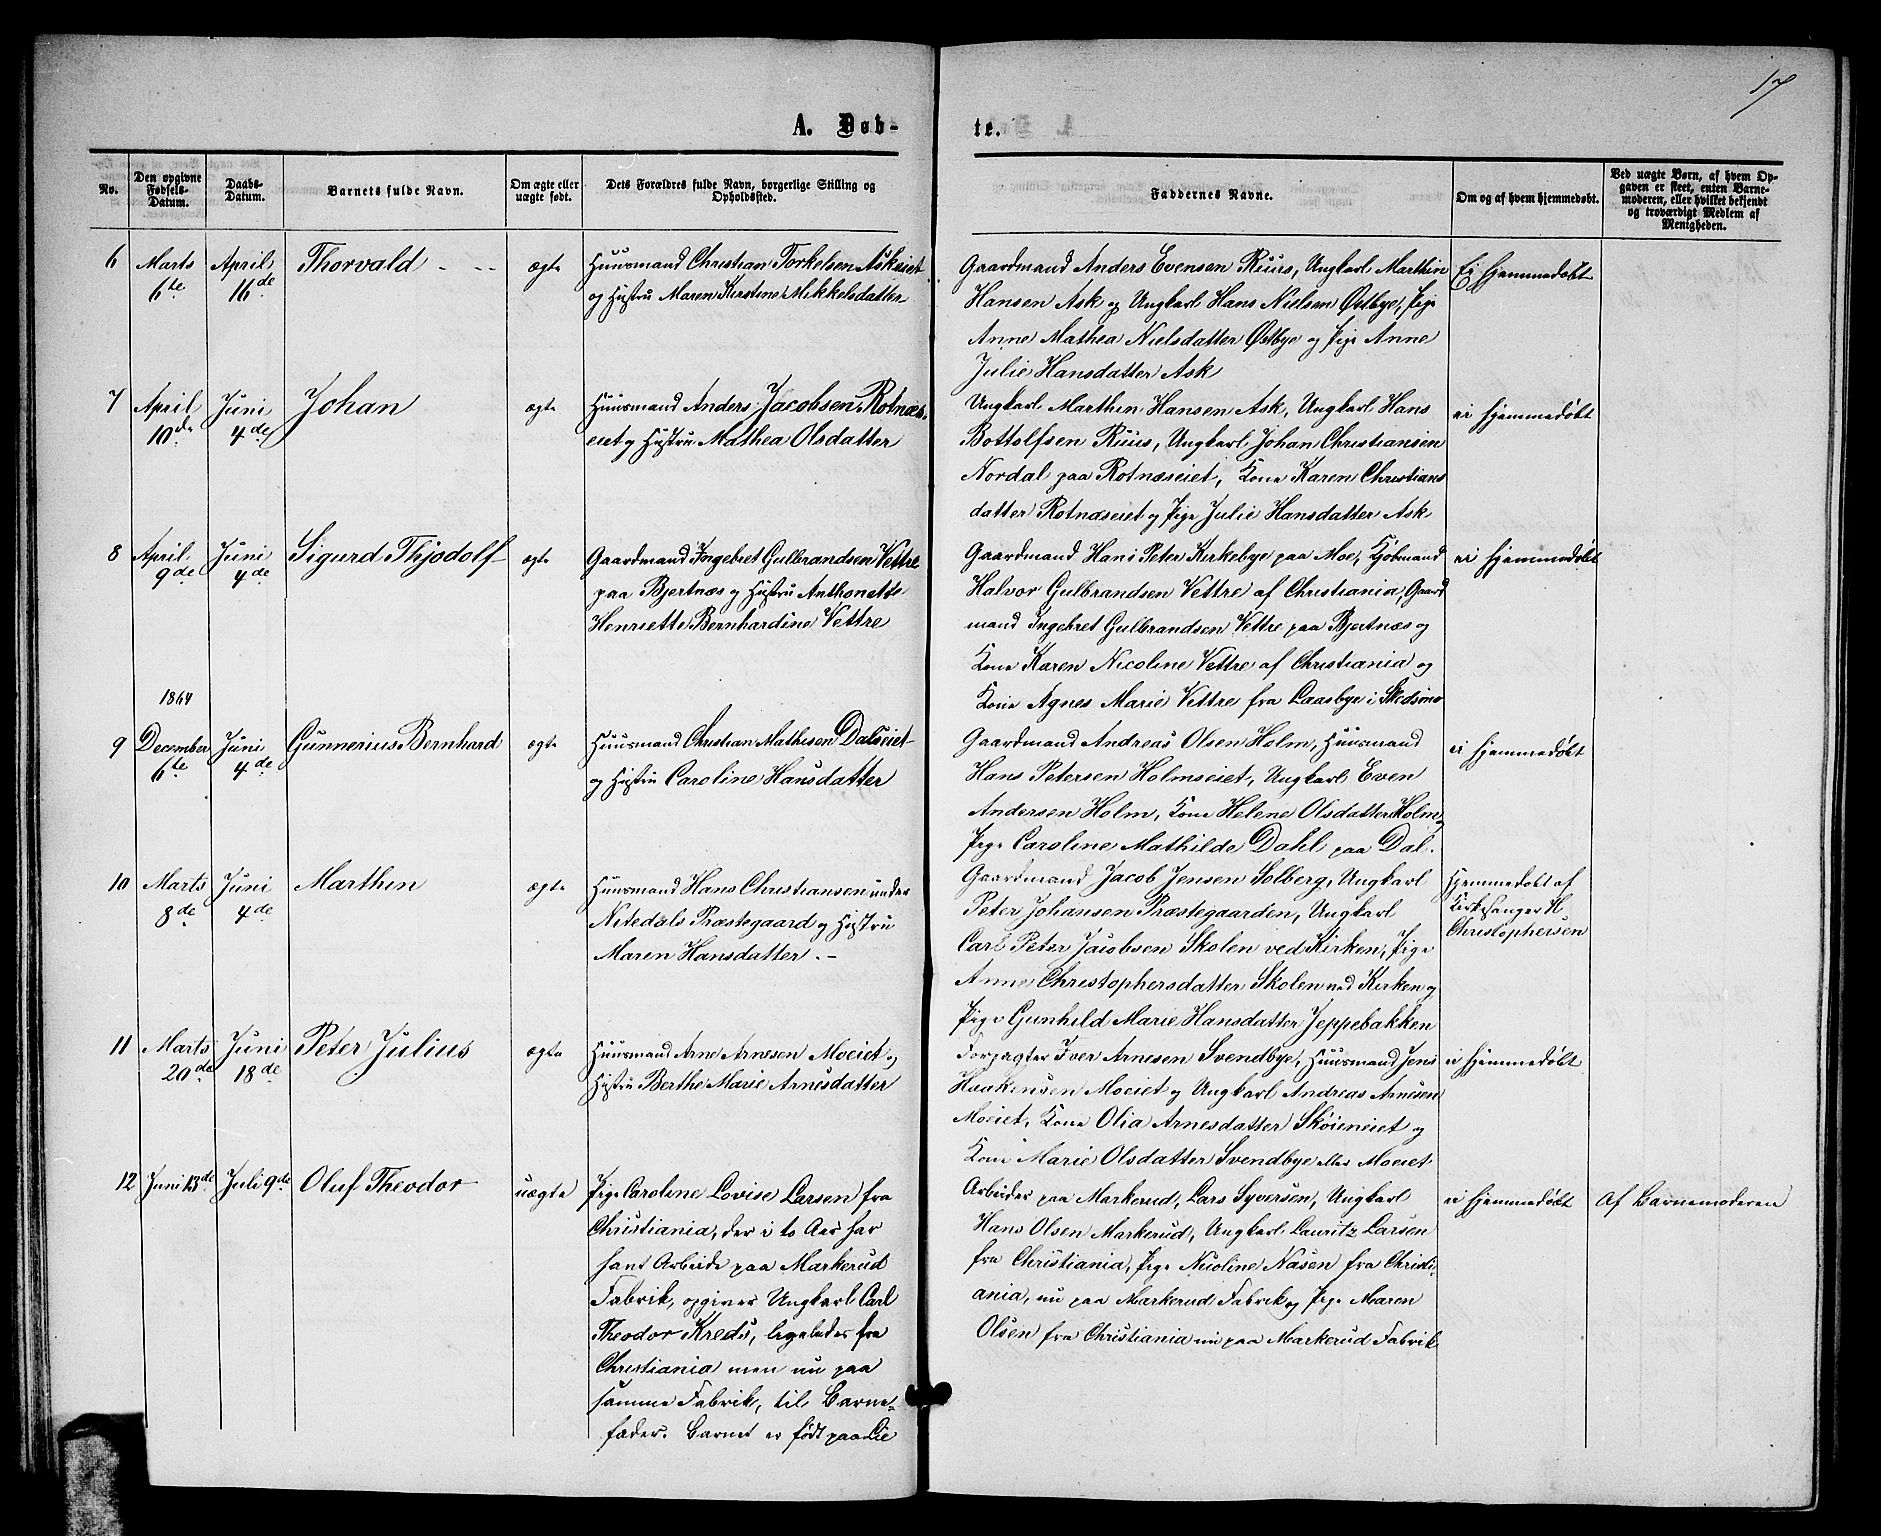 17
A. Døb-
te.
No.
Den opgivne Fødsels-Datum.
Daabs-Datum.
Barnets fulde Navn.
Om ægte eller uægte født.
Dets Forældres fulde Navn, borgerlige Stilling og Opholdssted.
Faddernes Navne.
Om og af hvem hjemmedøbt.
Ved uægte Børn, af hvem Op-
gaven er skeet, enten Barne-
moderen, eller hvilket bekjendt
og troværdigt Medlem af
Menigheden.
6 Marts 6te April 16de Thorvald ægte
Huusmand Christian Torkelsen Askeiet
og Hustru Maren Kirstine Mikkelsdatter
Gaardmand Anders Evensen Ruus, Ungkarl Marthin
Hansen Ask og Ungkarl Hans Nielsen Østbye, Pige
Anne Mathea Nielsdatter Østbye og Pige Anne
Julie Hansdatter Ask
Ej hjemmedøbt
7 April 10de Juni 4de Johan ægte
Huusmand Anders Jacobsen Rotnæs-
eiet og Hustru Mathea Olsdatter
Ungkarl Marthin Hansen Ask, Ungkarl Hans
Bottolfsen Ruus, Ungkarl Johan Christiansen
Nordal paa Rotnæseiet, Kone Karen Christians
datter Rotnæseiet og Pige Julie Hansdatter Ask
ei hjemmedøbt
8 April 9de Juni 4de Sigurd Thjodolf ægte
Gaardmand Ingebret Gulbrandsen Vettre
paa Bjertnæs og Hustru Anthonette
Henriette Bernhardine Vettre
Gaardmand Hans Peter Kirkebye paa Moe, Kjøbmand
Halvor Gulbrandsen Vettre af Christiania, Gaard
mand Ingebret Gulbrandsen Vettre paa Bjertnæs og
Kone Karen Nicoline Vettre af Christiania og
Kone Agnes Marie Vettre fra Laasbye i Skedsmo
ei hjemmedøbt
1864
9 December 6te Juni 4de Gunnerius Bernhard ægte
Huusmand Christian Mathisen Dalseiet
og Hustru Caroline Hansdatter
Gaardmand Andreas Olsen Holm, Huusmand
Hans Petersen Holmseiet, Ungkarl Even
Andersen Holm, Kone Helene Olsdatter Holm,
Pige Caroline Mathilde Dahl paa Dal.
ei hjemmedøbt
10 Marts 8de Juni 4de Marthin ægte
Huusmand Hans Christiansen under
Nitedals Præstegaard og Hustru
Maren Hansdatter.
Gaardmand Jacob Jensen Solberg, Ungkarl
Peter Johansen Præstegaarden, Ungkarl
Carl Peter Jacobsen Skolen ved Kirken, Pige
Anne Christophersdatter Skolen ved Kirken og
Pige Gunhild Marie Hansdatter Jeppebakken
Hjemmedøbt af
Kirkesanger H.
Christophersen
11 Marts 20de Juni 18de Peter Julius ægte
Huusmand Arne Arnesen Moeiet og
Hustru Berthe Marie Arnesdatter
Forpagter Iver Arnesen Svendbye, Huusmand Jens
Haakensen Moeiet og Ungkarl Andreas Arnesen
Moeiet, Kone Olia Arnesdatter Skøieneiet og
Kone Marie Olsdatter Svendbye eller Moeiet
ei hjemmedøbt
12 Juni 13de Juli 9de Oluf Theodor uægte
Pige Caroline Lovise Larsen fra
Christiania, der i to Aar har
havt Arbeide paa Markerud
Fabrik, opgiver Ungkarl Carl
Theodor Kreds, ligeledes fra
Christiania men nu paa
samme Fabrik, til Barne-
fader. Barnet er født paa
Arbeider paa Markerud, Lars Syversen, Ungkarl
Hans Olsen Markerud, Ungkarl Lauritz Larsen
fra Christiania, Pige Nicoline Nasen fra Christi-
ania, nu paa Markerud Fabrik og Pige Maren
Olsen fra Christiania nu paa Markerud Fabrik
ei hjemmedøbt
Af Barnemoderen